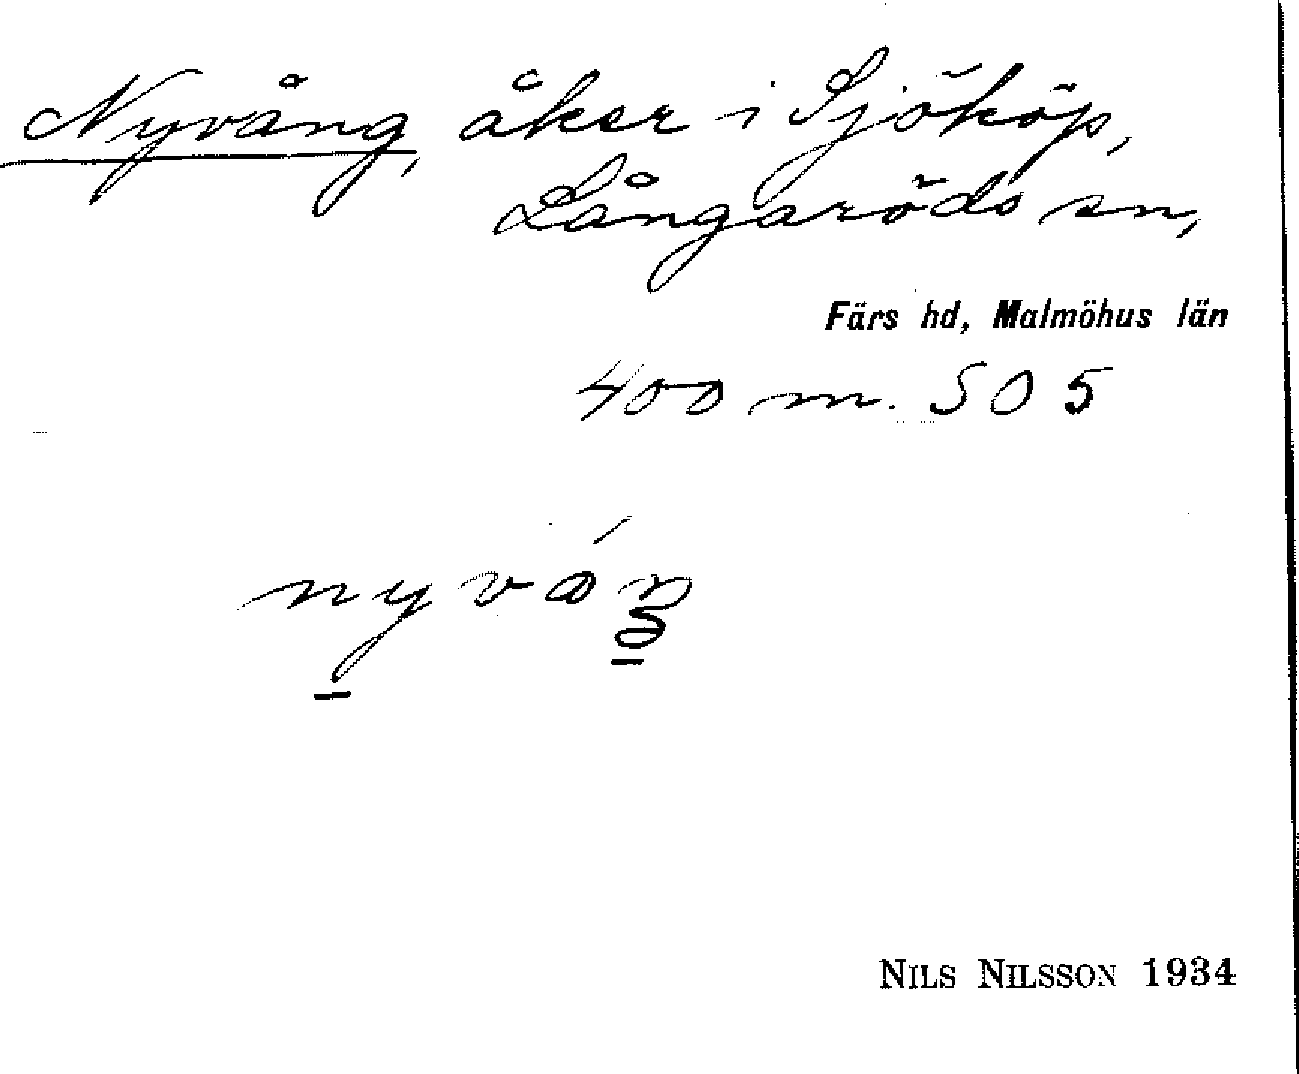 Nyvång, åker i Sjököp,
Långaröds sn,
Färs hd, Malmöhus län
400 m. SO 5
nyváŋ
NILS NILSSON 1934